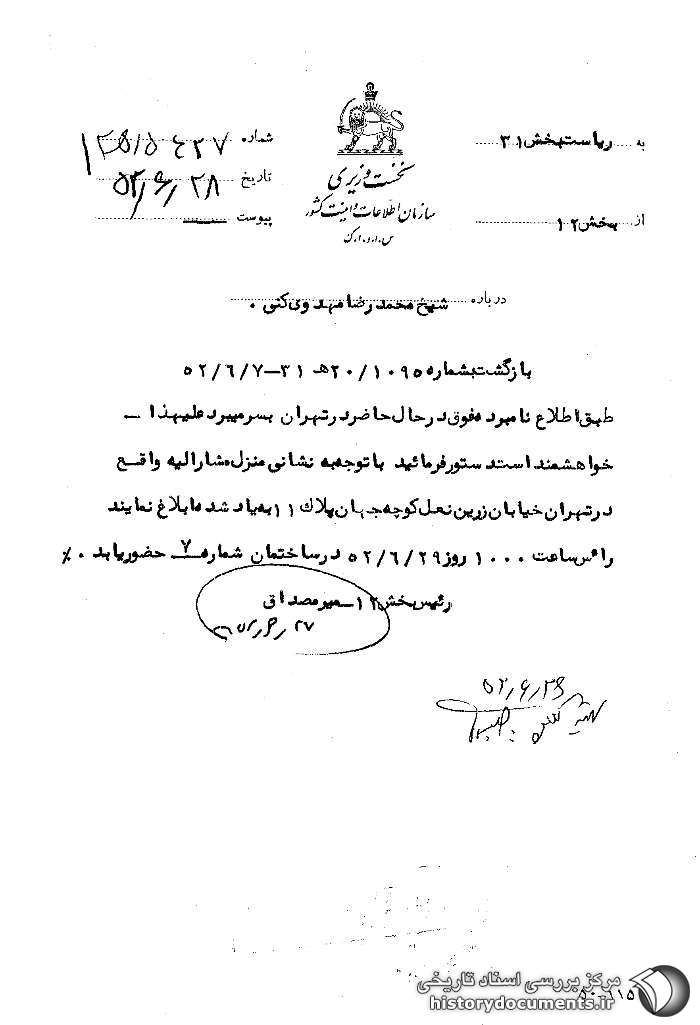 به ریاست بخش ۳۱
از بخش ۱۲
نخست وزیری
سازمان اطلاعات و امنیت کشور
س.ا.و.ا.ک
شماره
تاریخ ۵۲٫۶٫۲۸
پیوست
درباره شیخ محمد رضا مهدوی کنی .
بازگشت بشماره ۲۰/۱۰۹۵ هـ ۳۱-۵۲/۶/۷
طبق اطلاع نامبرده فوق در حال حاضر در تهران بسر میبرد علیهذا -
خواهشمند است دستور فرمائید با توجه به نشانی منزل مشارالیه واقع
در تهران خیابان زرین نعل کوچه جهان پلاک ۱۱ به یاد شده ابلاغ نمایند
راس ساعت ۱۰۰۰ روز ۵۲/۶/۲۹ در ساختمان شماره ۷ حضور یابد . %
رئیس بخش ۱۲ - میرمصداق
۵۲٫۶٫۲۶
مرکز بررسی اسناد تاریخی
historydocuments.ir